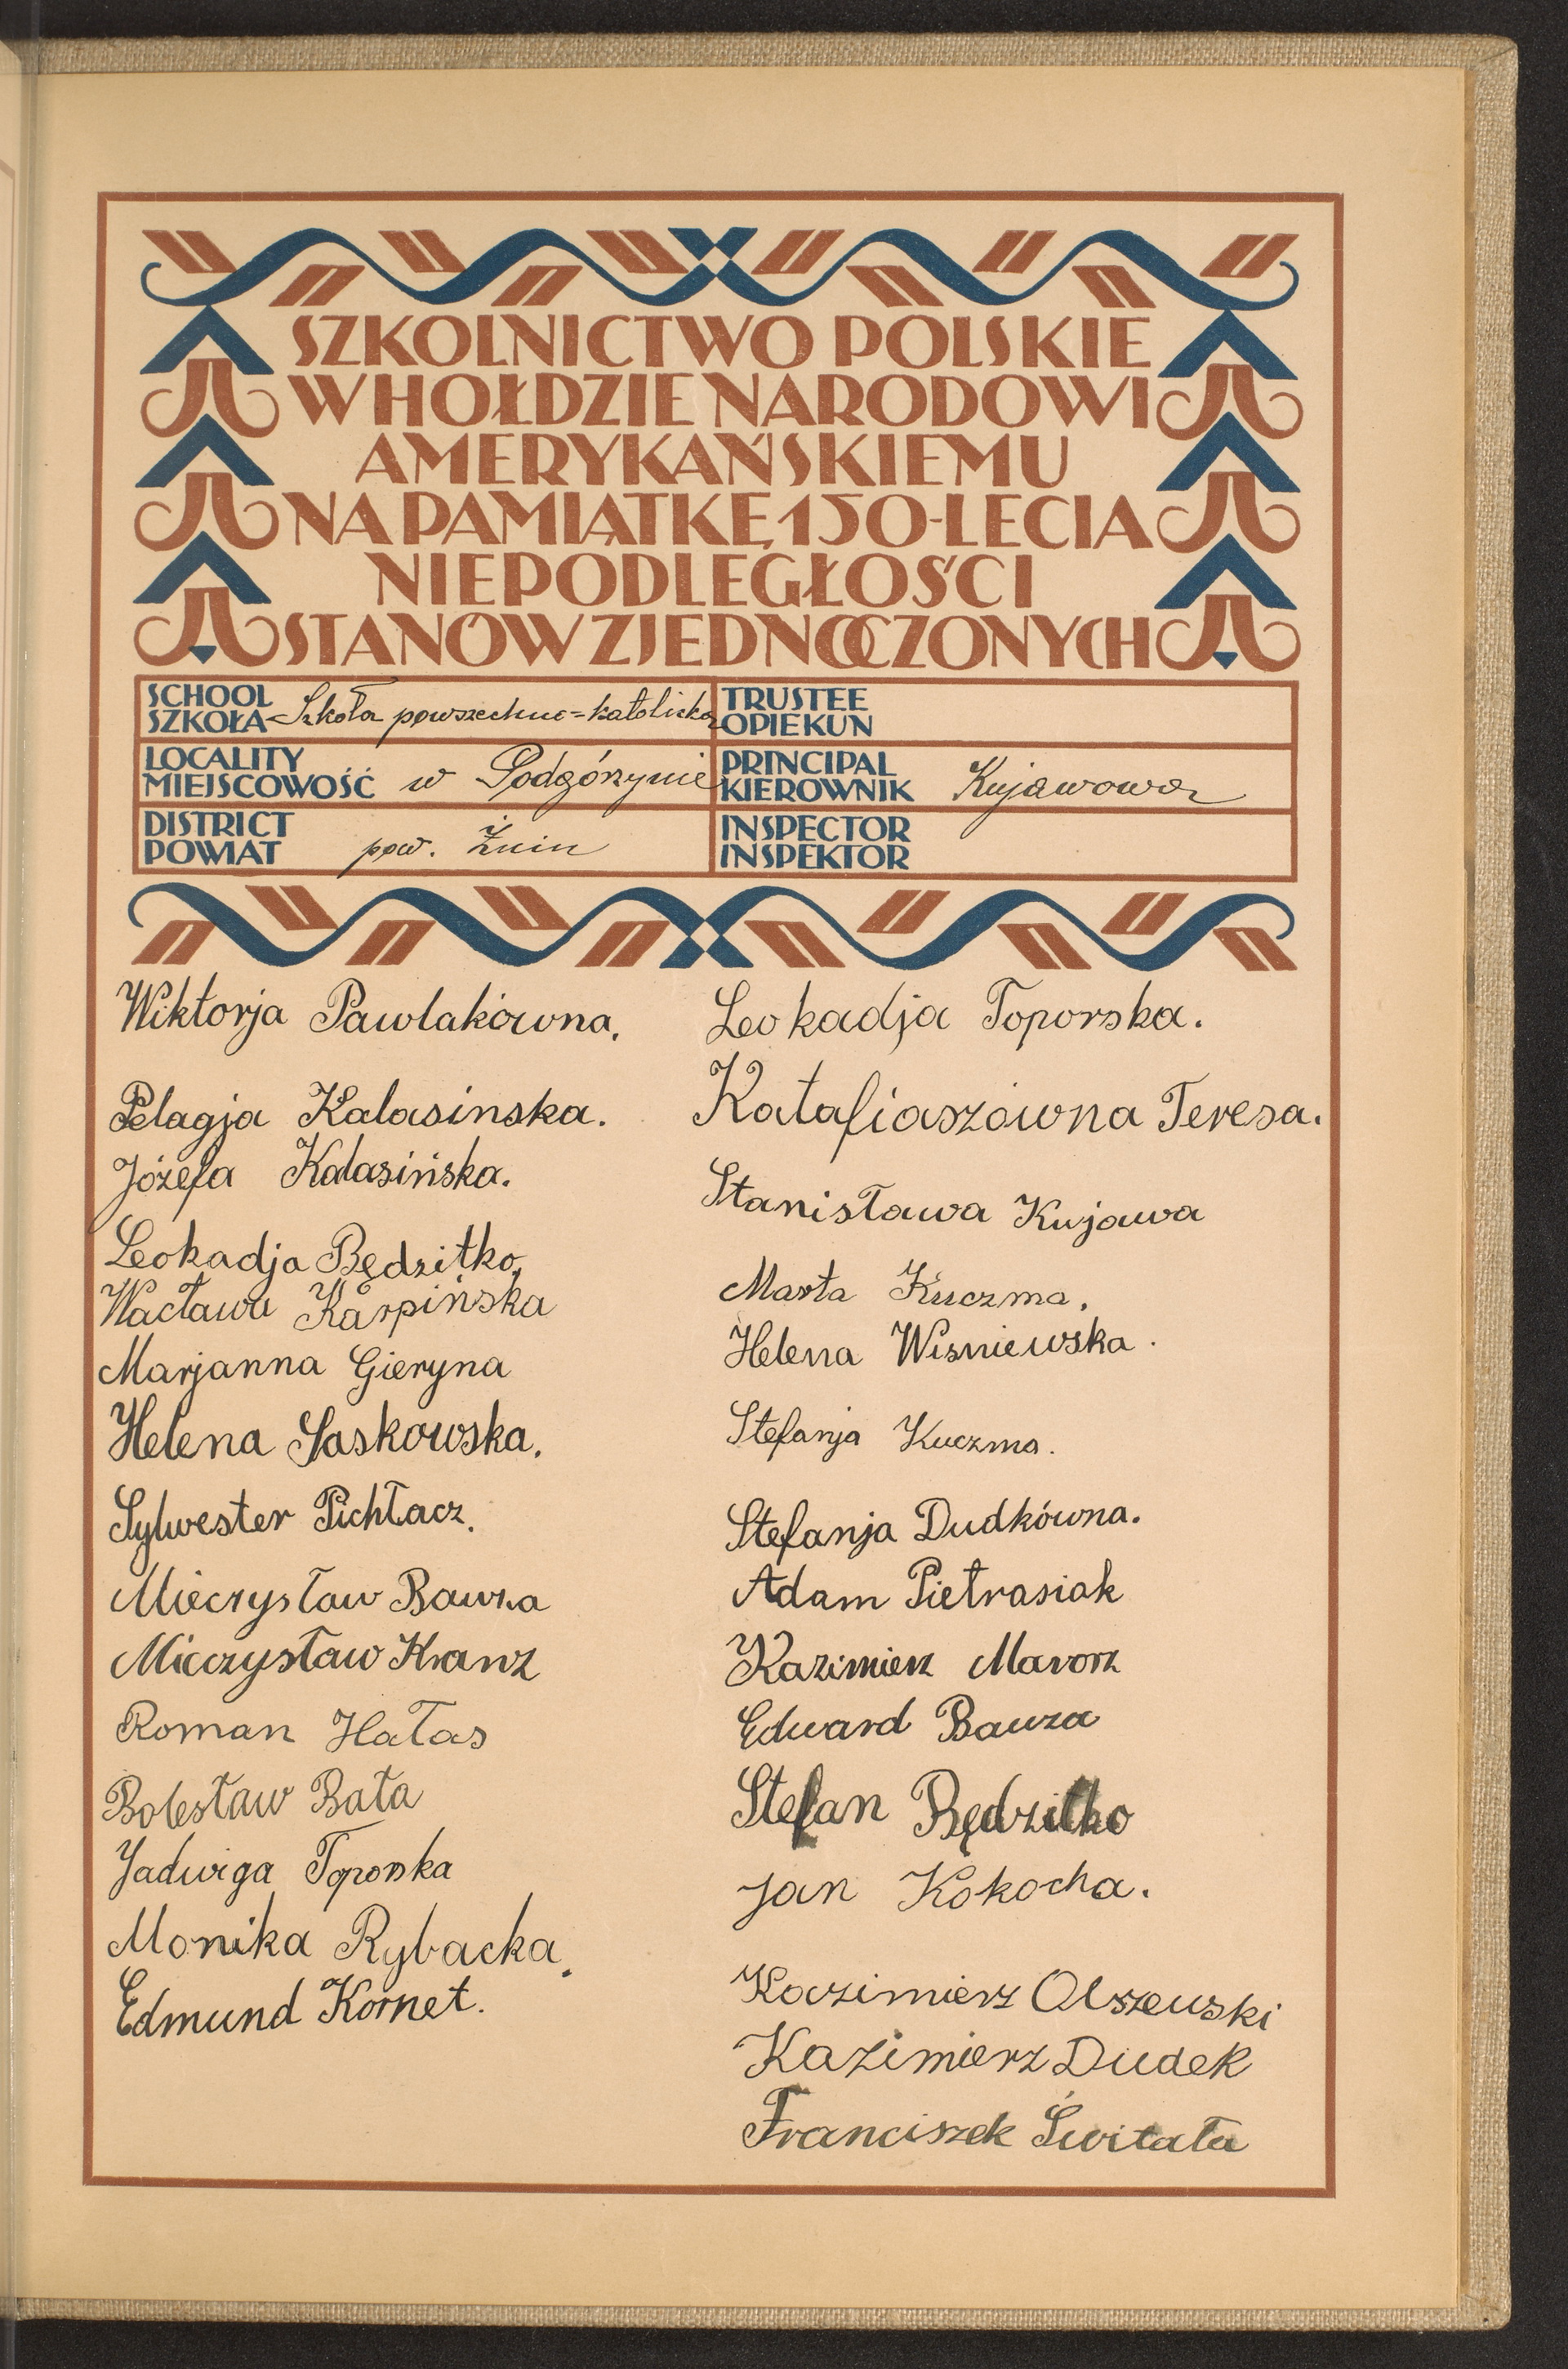 SZKOLNICTWO POLSKIE
W HOŁDZIE NARODOWI
AMERYKAŃSKIEMU
NA PAMIĄTKĘ 150-LECIA
NIEPODLEGŁOŚCI
STANÓW ZJEDNOCZONYCH
SCHOOL
SZKOŁA Szkoła powszechno=katolicka
LOCALITY
MIEJSCOWOŚĆ w Podgórzynie
DISTRICT
POWIAT pow. Żnin
TRUSTEE
OPIEKUN
PRINCIPAL
KIEROWNIK Kujawowa
INSPECTOR
INSPEKTOR
Wiktorja Pawlakówna.
Pelagja Kalasinska.
Józefa Kalasińska.
Leokadja Będzitko,
Wacława Karpińska
Marjanna Gieryna
Helena Saskowska.
Sylwester Pichłacz.
Mieczysław Bawza
Mieczysław Kranz
Roman Hałas
Bolesław Bała
Jadwiga Toporska
Monika Rybacka.
Edmund Kornet.
Leokadja Toporska.
Katafiaszówna Teresa.
Stanisława Kujawa
Marta Kuczma.
Helena Wisniewska.
Stefanja Kuczma.
Stefanja Dudkówna.
Adam Pietrasiak
Kazimierz Mavorz
Edward Bauza
Stefan Będzitko
Jan Kokocha.
Kazimierz Olszewski
Kazimierz Dudek
Franciszek Świtała